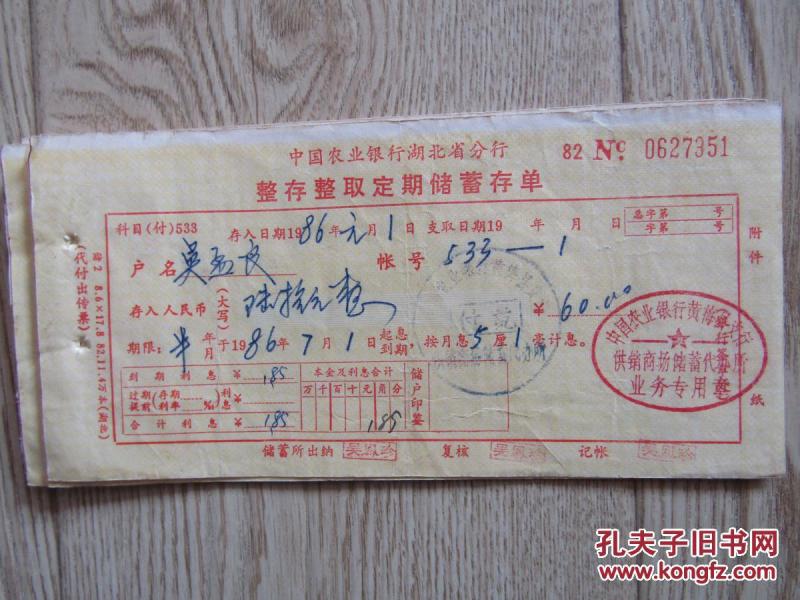 中国农业银行湖北省分行
82 No 0627351
整存整取定期储蓄存单
科目(付)533 存入日期1986年元月1日 支取日期19 年 月 日
总字第 号
字第 号
户名 吴 良 帐号 533—1
存入人民币(大写) 陆拾元整 60.00
期限:半年月于1986年7月1日起息到期,按月息5厘1毫计息。
到期利息 ¥ 1.85
过期(存期 )利
提前(利率 ‰)息 ¥
合计利息 ¥ 1.85
本金及利息合计
万千百十元角分
1.85
储户印鉴
附件 纸
储蓄所出纳 复核 记帐
储2 8.6×17.8 82.11.4万本
(代付出传票)
付讫
中国农业银行黄梅
供销商场储蓄代办所
业务专用章
孔夫子旧书网
www.kongfz.com